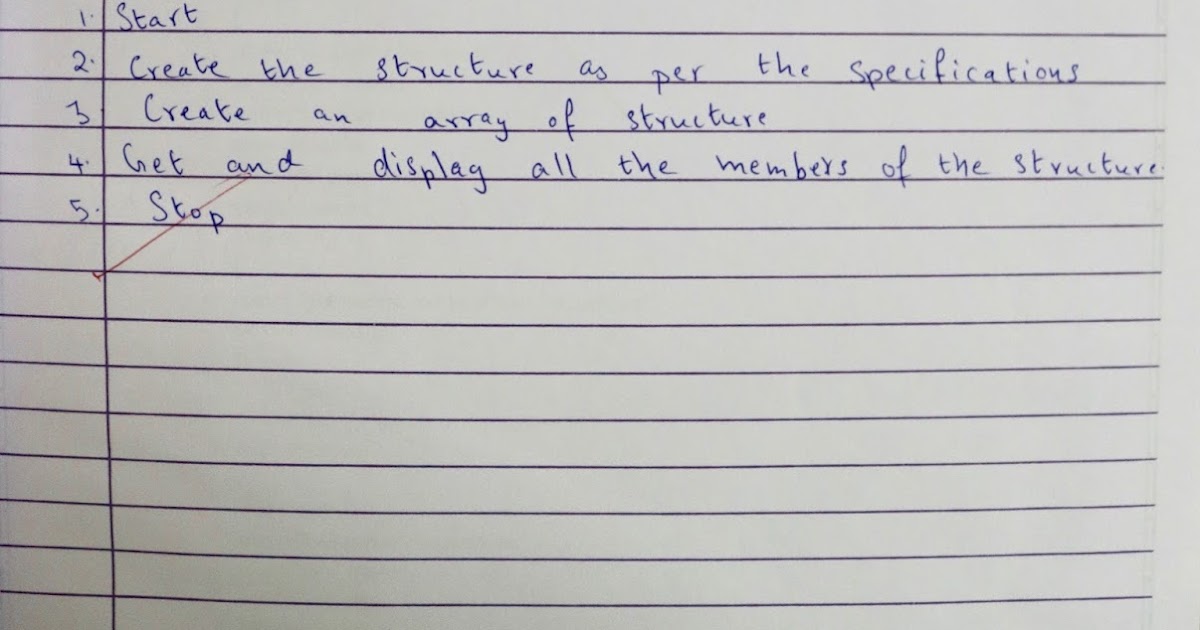 1. Start
2. Create the structure as per the specifications
3 Create an array of structure
4. Get and display all the members of the structure.
5. Stop